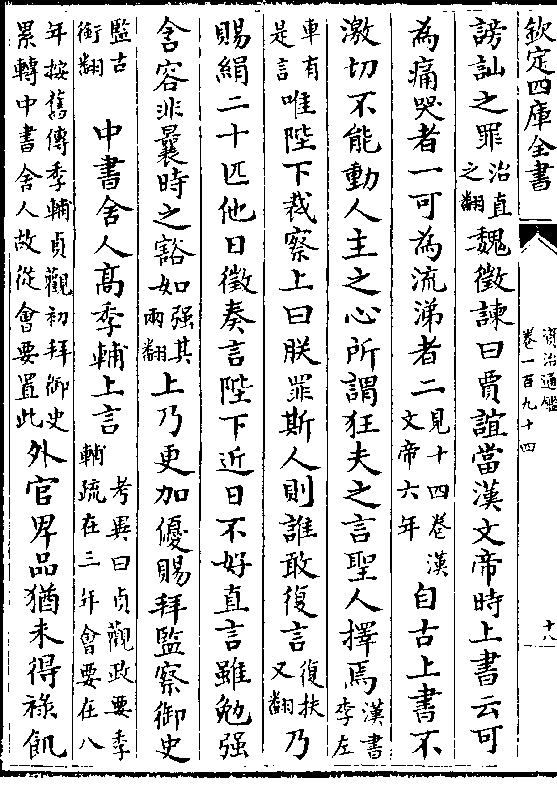 欽定四庫全書
資治通鑑
卷一百九十四
十八
謗訕之罪治直之翻魏徵諫曰賈誼當漢文帝時上書云可
為痛哭者一可為流涕者二見十四卷漢文帝六年自古上書不
激切不能動人主之心所謂狂夫之言聖人擇焉漢書李左
車有是言唯陛下裁察上曰朕罪斯人則誰敢復言復扶又翻乃
賜絹二十匹他日徵奏言陛下近日不好直言雖勉强
含容非曩時之豁如强其兩翻上乃更加優賜拜監察御史
監古銜翻中書舍人高季輔上言考異曰貞觀政要季輔疏在三年會要在八
年按舊傳季輔貞觀初拜御史累轉中書舍人故從會要置此外官卑品猶未得祿飢